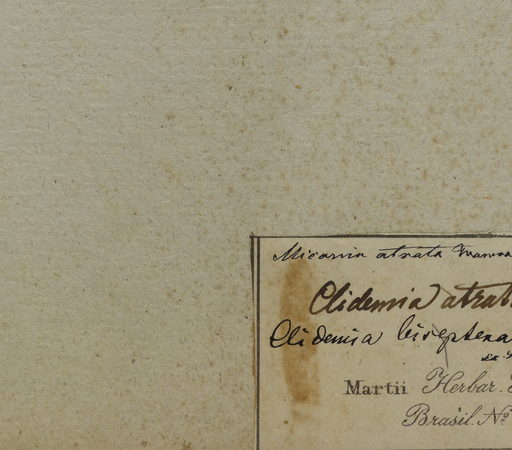 Miconia atrata
Clidemia atrat
Clidemia biseptena
Martii Herbar.
Brasil. Nº